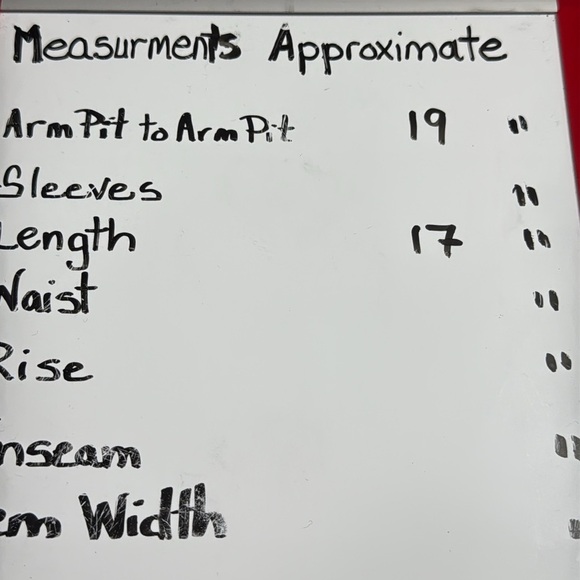 Measurments Approximate
ArmPit to ArmPit 19 "
Sleeves "
Length 17 "
Waist "
Rise "
nseam "
em Width "